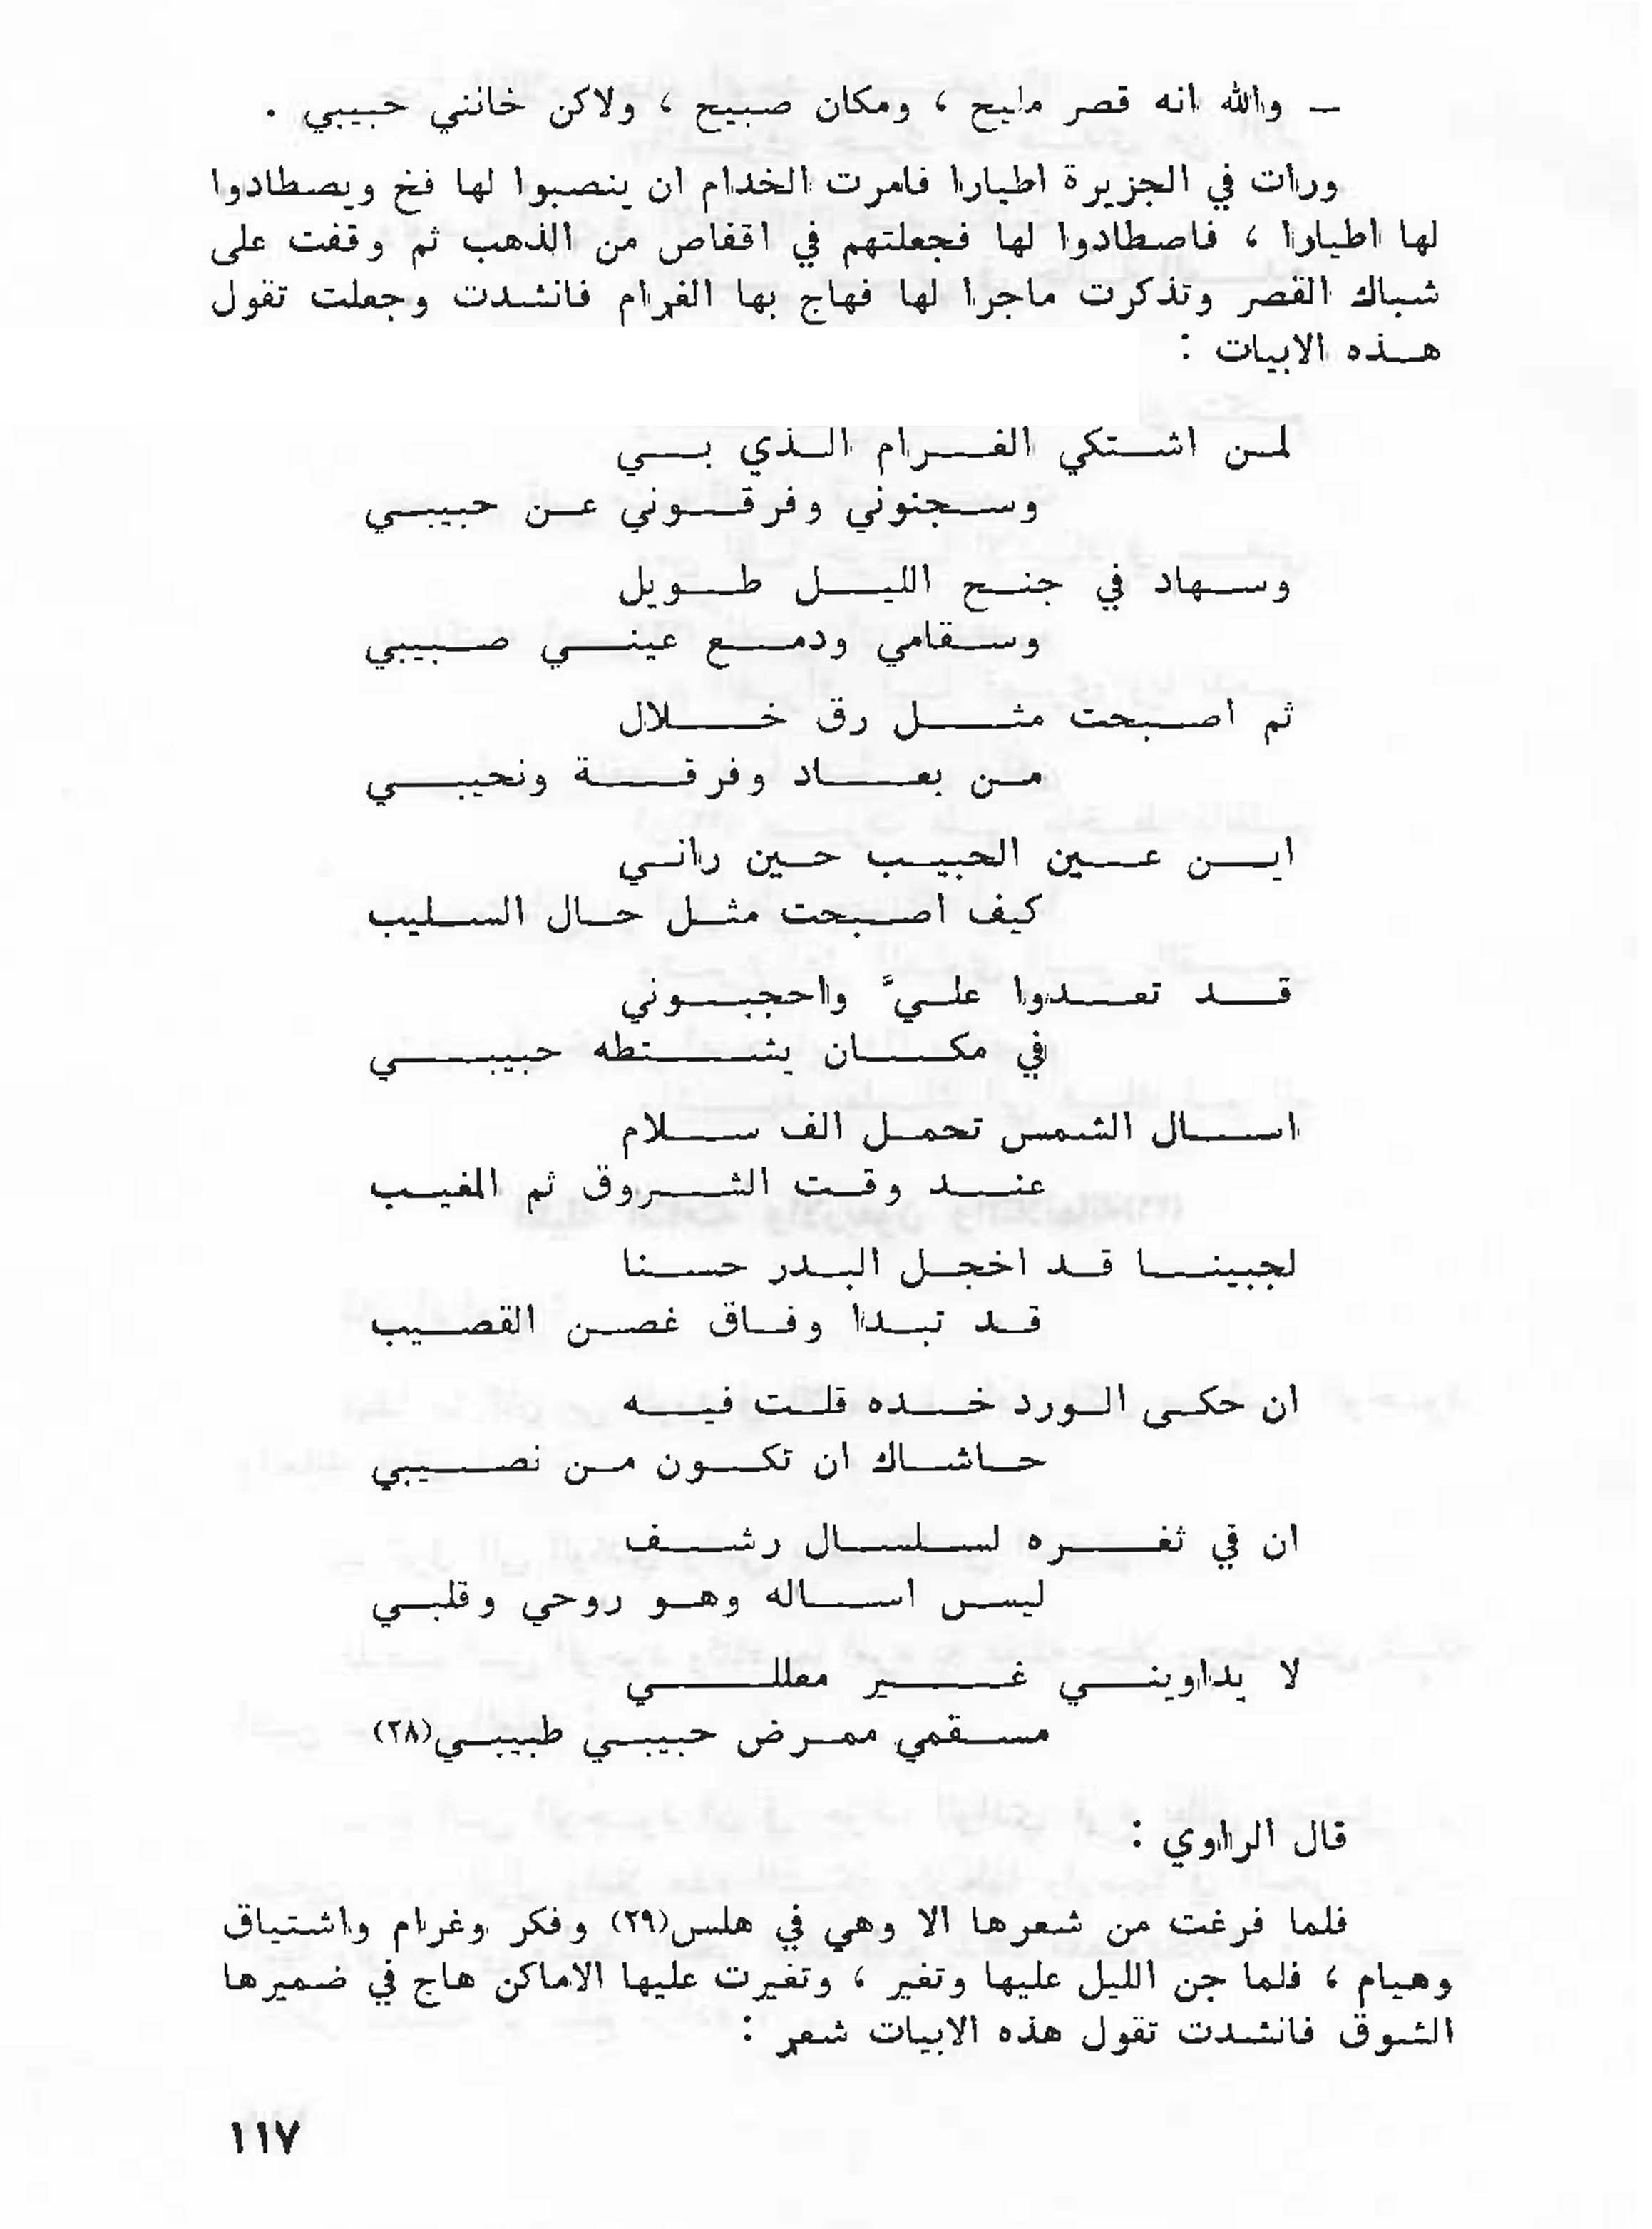 ـ والله انه قصر مليح ، ومكان صبيح ، ولاكن خانني حبيبي .
ورات في الجزيرة اطيارا فامرت الخدام ان ينصبوا لها فخ ويصطادوا
لها اطيارا ، فاصطادوا لها فجعلتهم في اقفاص من الذهب ثم وقفت على
شباك القصر وتذكرت ماجرا لها فهاج بها الغرام فانشدت وجعلت تقول
هذه الابيات :
لمن اشتكي الغرام الذي بي
وسجنوني وفرقوني عن حبيبي
وسهاد في جنح الليل طويل
وسقامي ودمع عيني صبيبي
ثم اصبحت مثل رق خلال
من بعاد وفرقة ونحيبي
اين عين الحبيب حين راني
كيف اصبحت مثل حال السليب
قد تعدوا عليَّ واحجبوني
في مكان يشتطه حبيبي
اسال الشمس تحمل الف سلام
عند وقت الشروق ثم المغيب
لجبينا قد اخجل البدر حسنا
قد تبدا وفاق غصن القصيب
ان حكى الورد خده قلت فيه
حاشاك ان تكون من نصيبي
ان في ثغره لسلسال رشف
ليس اساله وهو روحي وقلبي
لا يداويني غير معللي
مسقمي ممرض حبيبي طبيبي(٢٨)
قال الراوي :
فلما فرغت من شعرها الا وهي في هلس(٢٩) وفكر وغرام واشتياق
وهيام ، فلما جن الليل عليها وتغير ، وتغيرت عليها الاماكن هاج في ضميرها
الشوق فانشدت تقول هذه الابيات شعر :
١١٧